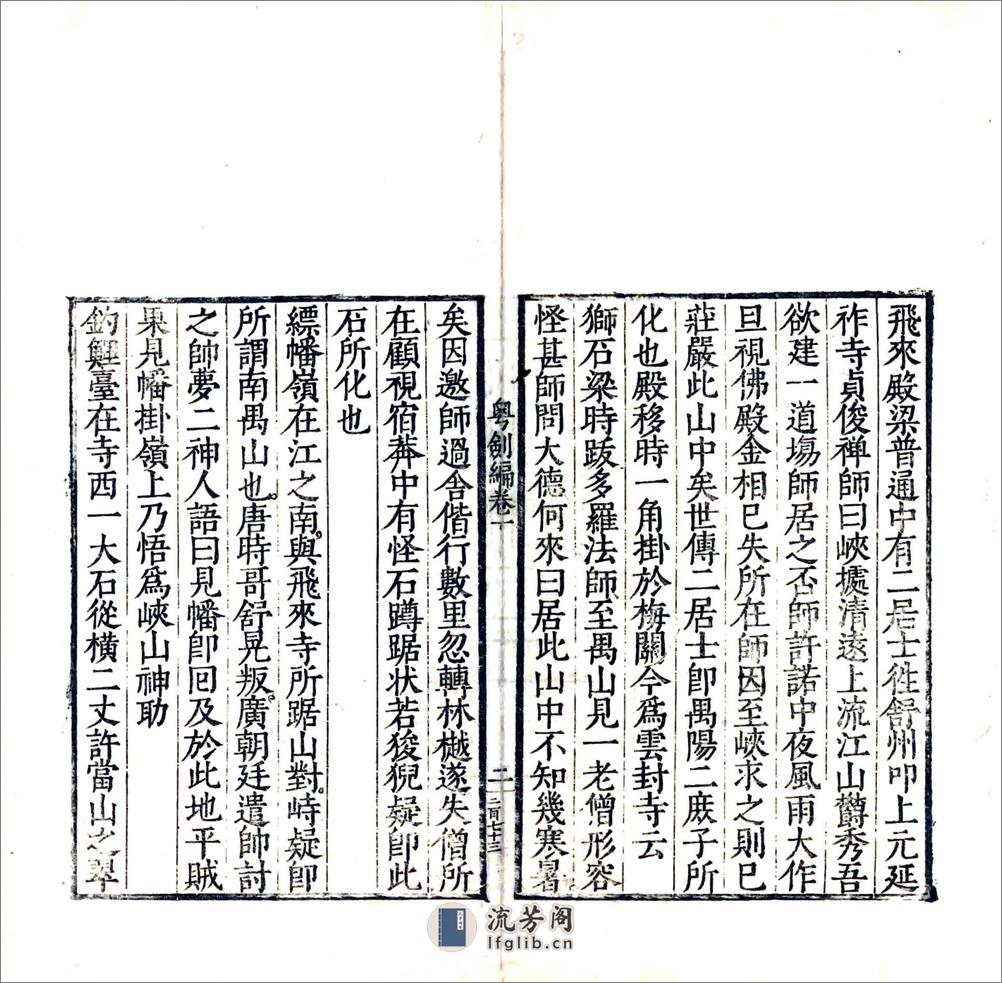 飛來殿梁普通中有二居士徃舒州叩上元延
祚寺貞俊禪師曰峽㩀清遠上流江山欝秀吾
欲建一道塲師居之否師許諾中夜風雨大作
旦視佛殿金相已失所在師因至峽求之則已
莊嚴此山中矣世傳二居士卽禺陽二庶子所
化也殿移時一角掛於梅關今爲雲封寺云
獅石梁時跋多羅法師至禺山見一老僧形容
怪甚師問大德何來曰居此山中不知幾寒暑
粤劍編卷一
二
二百七十三
矣因邀師過舍偕行數里忽轉林樾遂失僧所
在顧視宿莽中有怪石蹲踞状若狻猊疑卽此
石所化也
縹幡嶺在江之南與飛來寺所踞山對峙疑卽
所謂南禺山也唐時哥舒晃叛廣朝廷遣帥討
之帥夢二神人語曰見幡卽囘及於此地平賊
果見幡掛嶺上乃悟爲峽山神助
釣鯉臺在寺西一大石從横二丈許當山之翠
流芳阁
lfglib.cn